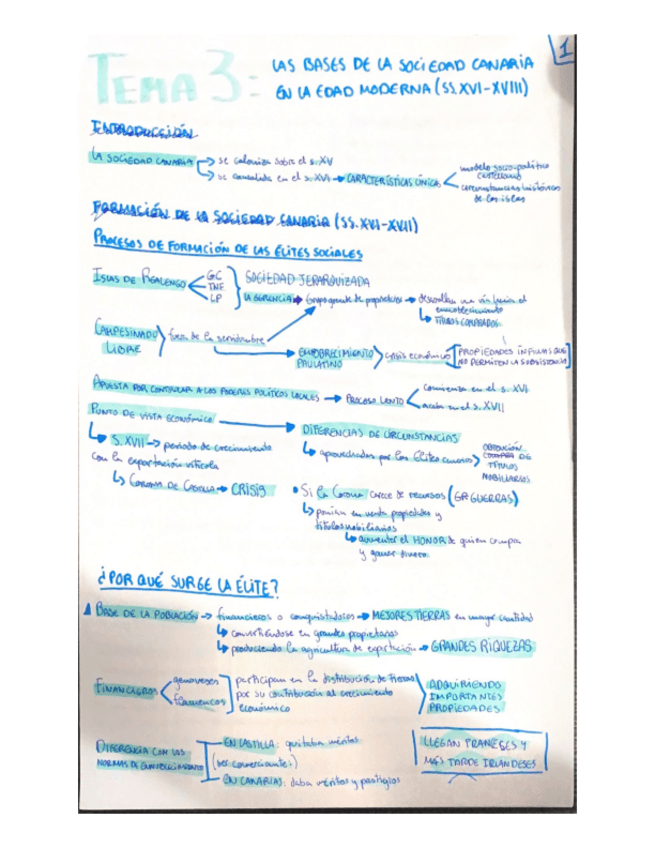 1
TEMA 3: LAS BASES DE LA SOCIEDAD CANARIA
EN LA EDAD MODERNA (SS.XVI-XVIII)
INTRODUCCIÓN
LA SOCIEDAD CANARIA → se coloniza sobre el s. XV
→ se consolida en el s. XVI → CARACTERÍSTICAS ÚNICAS
modelo socio-político
castellano
circunstancias históricas
de las islas
FORMACIÓN DE LA SOCIEDAD CANARIA (SS.XVI-XVII)
PROCESOS DE FORMACIÓN DE LAS ÉLITES SOCIALES
ISLAS DE REALENGO
GC
TNF
LP
SOCIEDAD JERARQUIZADA
LA → Grupo grande de propietarios → desarrollan una vía hacia el
ennoblecimiento
→ TÍTULOS COMPRADOS
CAMPESINADO
LIBRE
fuera de la servidumbre
→ EMPOBRECIMIENTO
PAULATINO
crisis económica
[PROPIEDADES ÍNFIMAS QUE
NO PERMITEN LA SUBSISTENCIA]
APUESTA POR CONTROLAR A LOS PODERES POLÍTICOS LOCALES → PROCESO LENTO
comienza en el s. XVI
acaba en el s. XVII
PUNTO DE VISTA ECONÓMICO → DIFERENCIAS DE CIRCUNSTANCIAS
↳ S. XVII → periodo de crecimiento
con la exportación vitícola
↳ CORONA DE CASTILLA → CRISIS
↳ aprovechadas por las Élites canarias
OBTENCIÓN
COMPRA DE
TÍTULOS
NOBILIARIOS
• Si la Corona carece de recursos (GUERRAS)
↳ ponían en venta propiedades y
títulos nobiliarios
↳ aumentar el HONOR de quien compra
y ganar dinero
¿POR QUÉ SURGE LA ÉLITE?
BASE DE LA POBLACIÓN → financieros o conquistadores → MEJORES TIERRAS en mayor cantidad
↳ convirtiéndose en grandes propietarios
↳ produciendo la agricultura de exportación → GRANDES RIQUEZAS
FINANCIEROS
genoveses
flamencos
participan en la distribución de tierras
por su contribución al crecimiento
económico
ADQUIRIENDO
IMPORTANTES
PROPIEDADES
DIFERENCIA CON LAS
NORMAS DE ENNOBLECIMIENTO
EN CASTILLA: quitaba méritos
(ser comerciante:)
EN CANARIAS: daba méritos y prestigios
LLEGAN FRANCESES Y
MÁS TARDE IRLANDESES